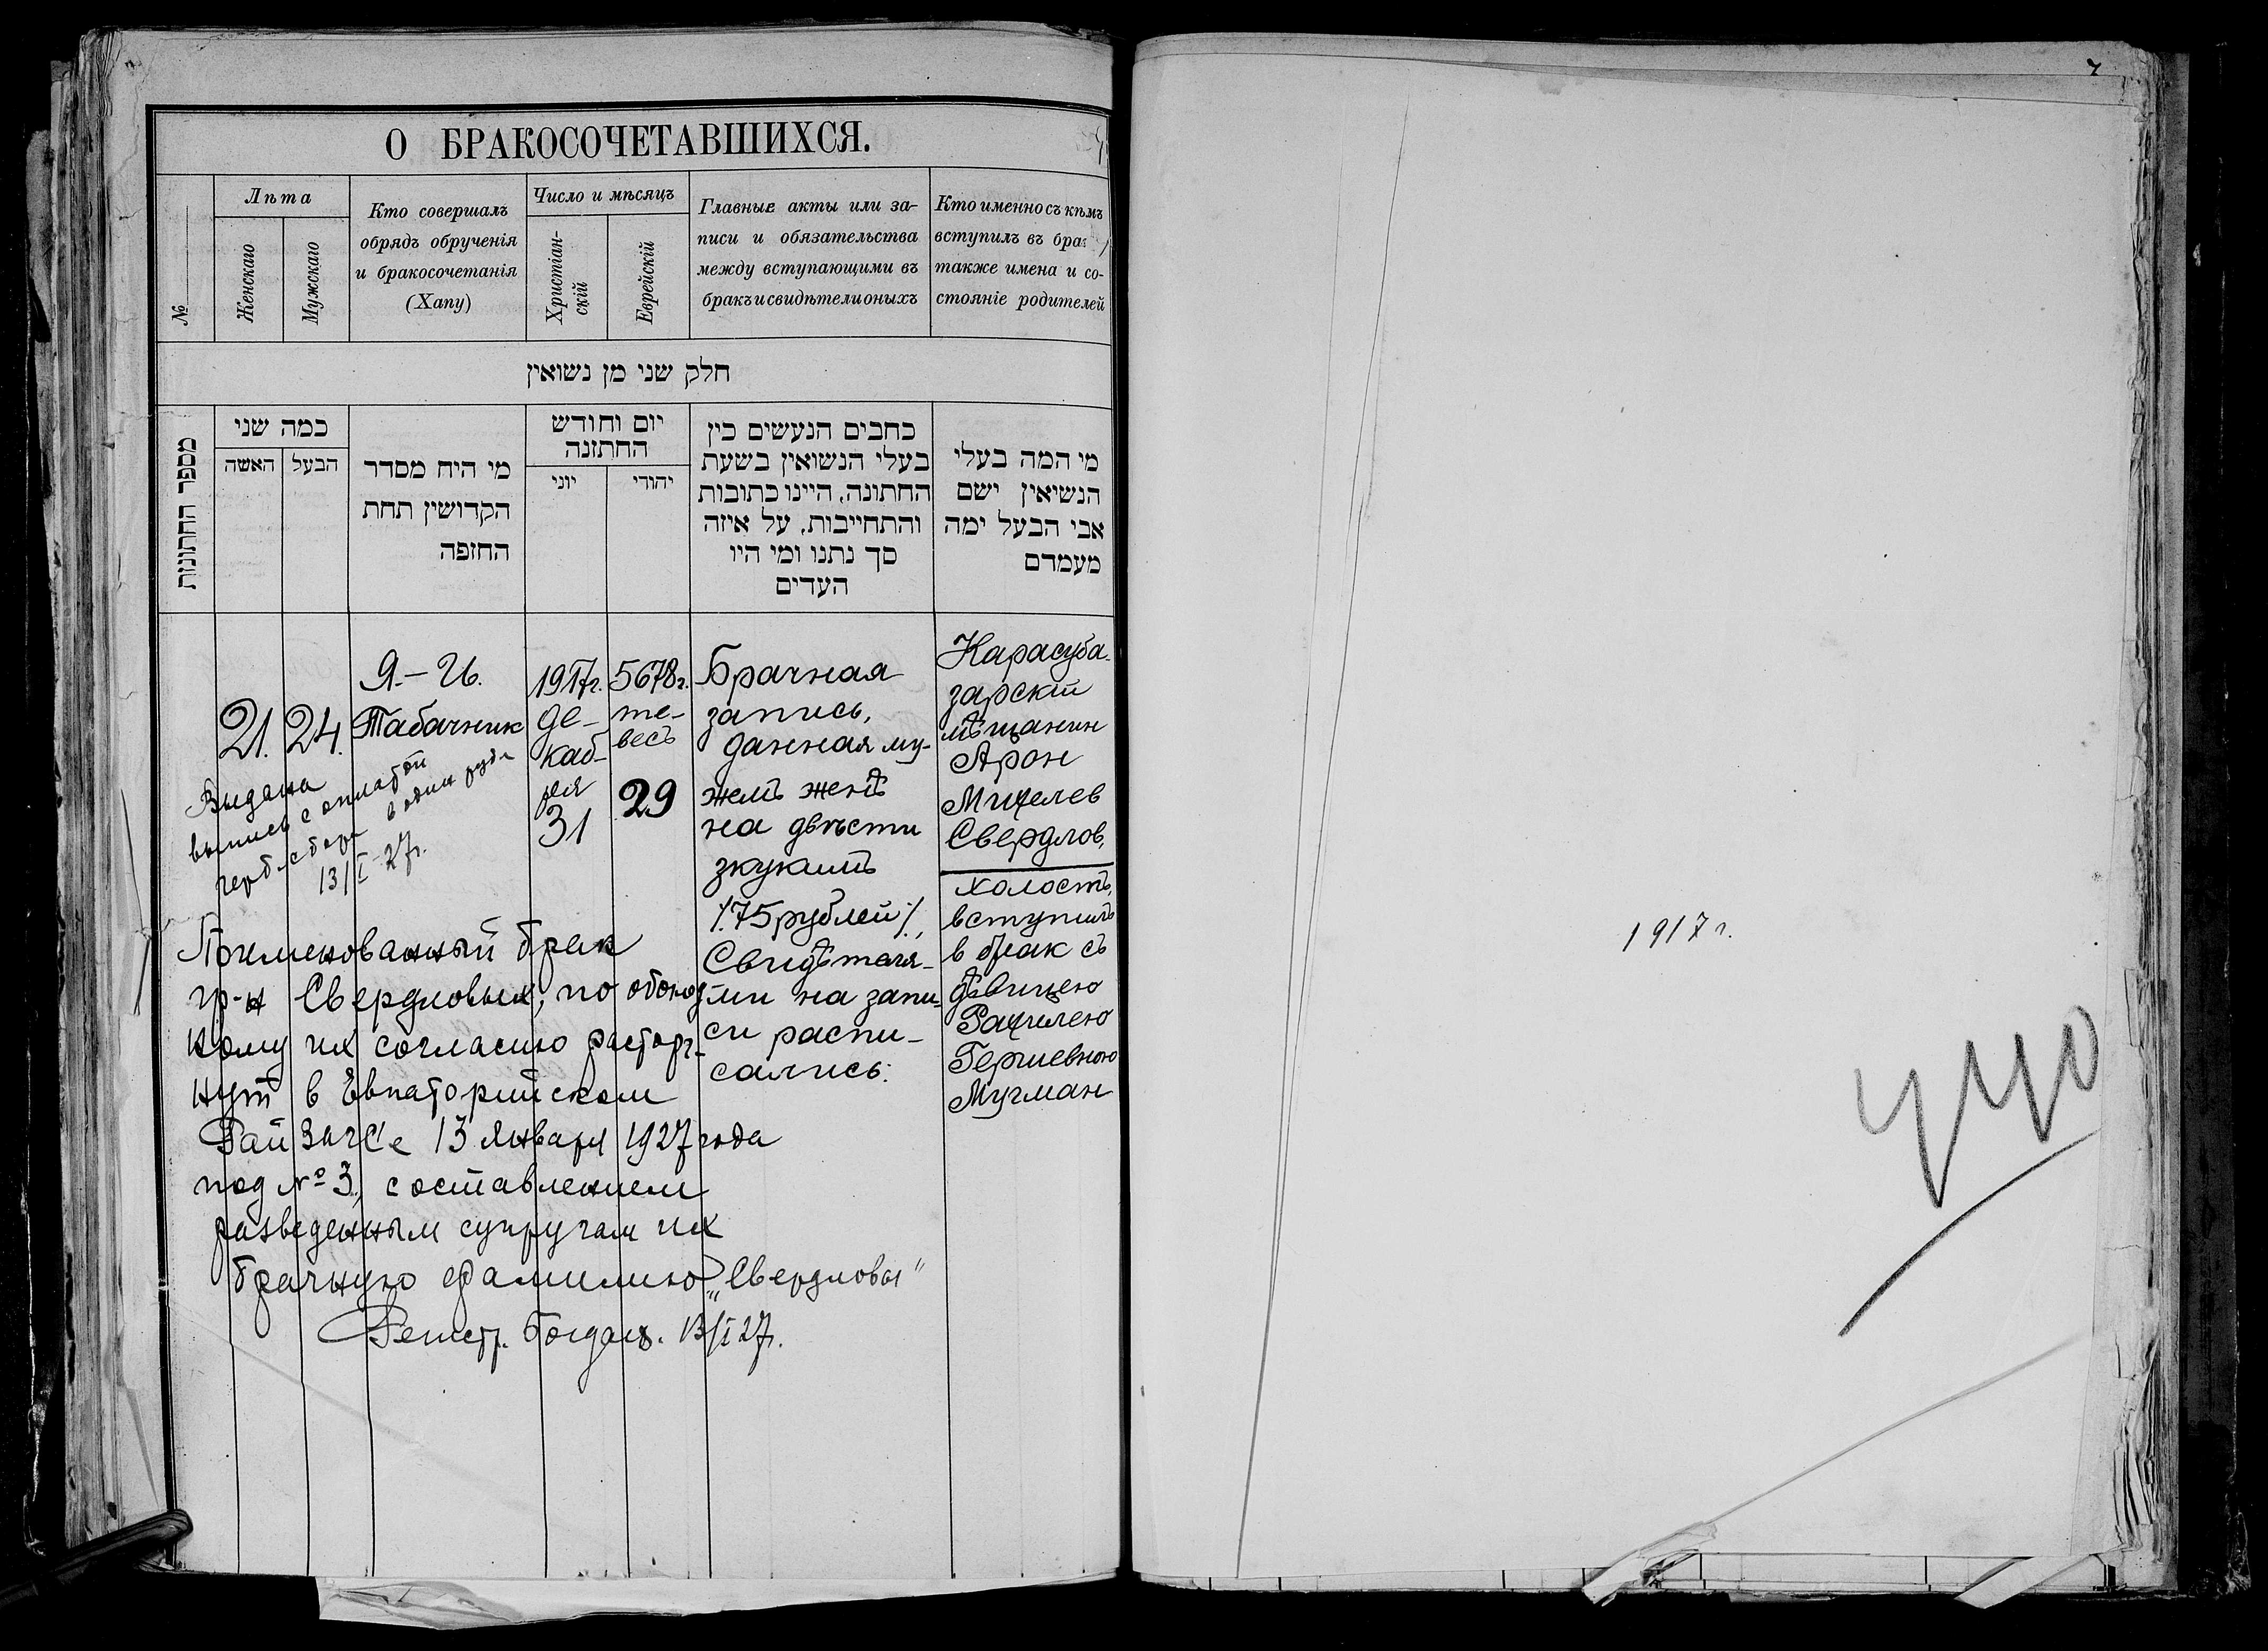 О БРАКОСОЧЕТАВШИХСЯ.
№
Лѣта
Женскаго
Мужскаго
Кто совершалъ
обрядъ обрученія
и бракосочетанія
(Хапу)
Число и мѣсяцъ
Христіан-
скій
Еврейскій
Главные акты или за-
писи и обязательства
между вступающими въ
бракъ и свидѣтели оныхъ
Кто именно съ кѣмъ
вступилъ въ бра
также имена и со-
стояніе родителей
חלק שני מן נשואין
מספר החתונות
כמה שני
האשה
הבעל
מי היח מסדר
הקדושין תחת
החופה
יום וחודש
החתונה
יוני
יהודי
כחבים הנעשים כין
בעלי הנשואין בשעת
החתונה, היינו כתובות
והתחייבות, על איזה
סך נתנו ומי היו
העדים
מי המה בעלי
הנשיאין ישם
אבי הבעל ימה
מעמדם
21.
24.
Я.-И.
Табачник
1917г.
де-
каб-
ря
31
5678г.
те-
весъ
29
Брачная
запись,
данная му-
жемъ женѣ
на двѣсти
зкукимъ
/.75 рублей/.,
Свидѣтеля-
ми на запи-
си распи-
сались:
Карасуба-
зарскій
мѣщанин
Арон
Мицелев
Свердлов,
холостъ,
вступилъ
в брак съ
дѣвицею
Рацилею
Гершевною
Мугман
Выдана
выпись с оплатой
герб. сбора в один рубл
13/I-27г.
Поименованный брак
гр-н Свердловых, по обоюд-
ному их согласию расторг-
нут в Евпаторийском
РайЗАГСе 13 января 1927 года
под № 3, с оставлением
разведенным супругам их
брачную фамилию „Свердловы"
13/I 27г.
7
1917 г.